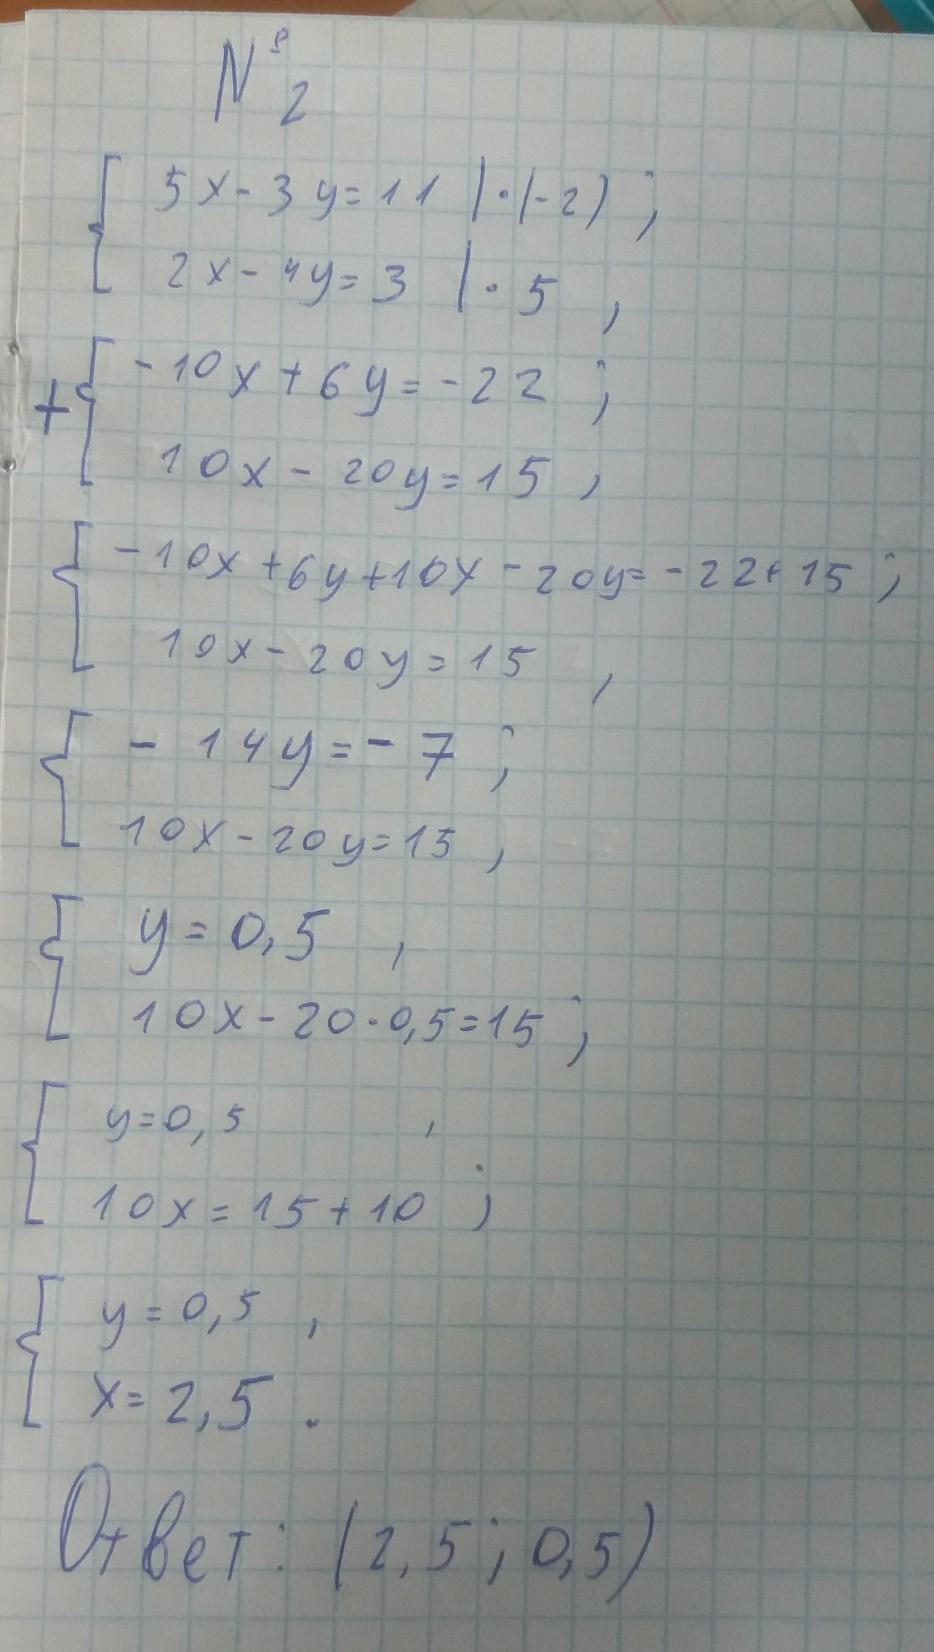 № 2
5x-3y=11 |·(-2) ;
2x-4y=3 |· 5 ,
-10x+6y=-22 ;
+
10x-20y=15 ,
-10x+6y+10x-20y=-22+15 ;
10x-20y=15 ,
-14y=-7 ;
10x-20y=15 ,
y=0,5 ,
10x-20·0,5=15 ;
y=0,5 ,
10x=15+10 ;
y=0,5 ,
x=2,5 .
Ответ: (2,5; 0,5)